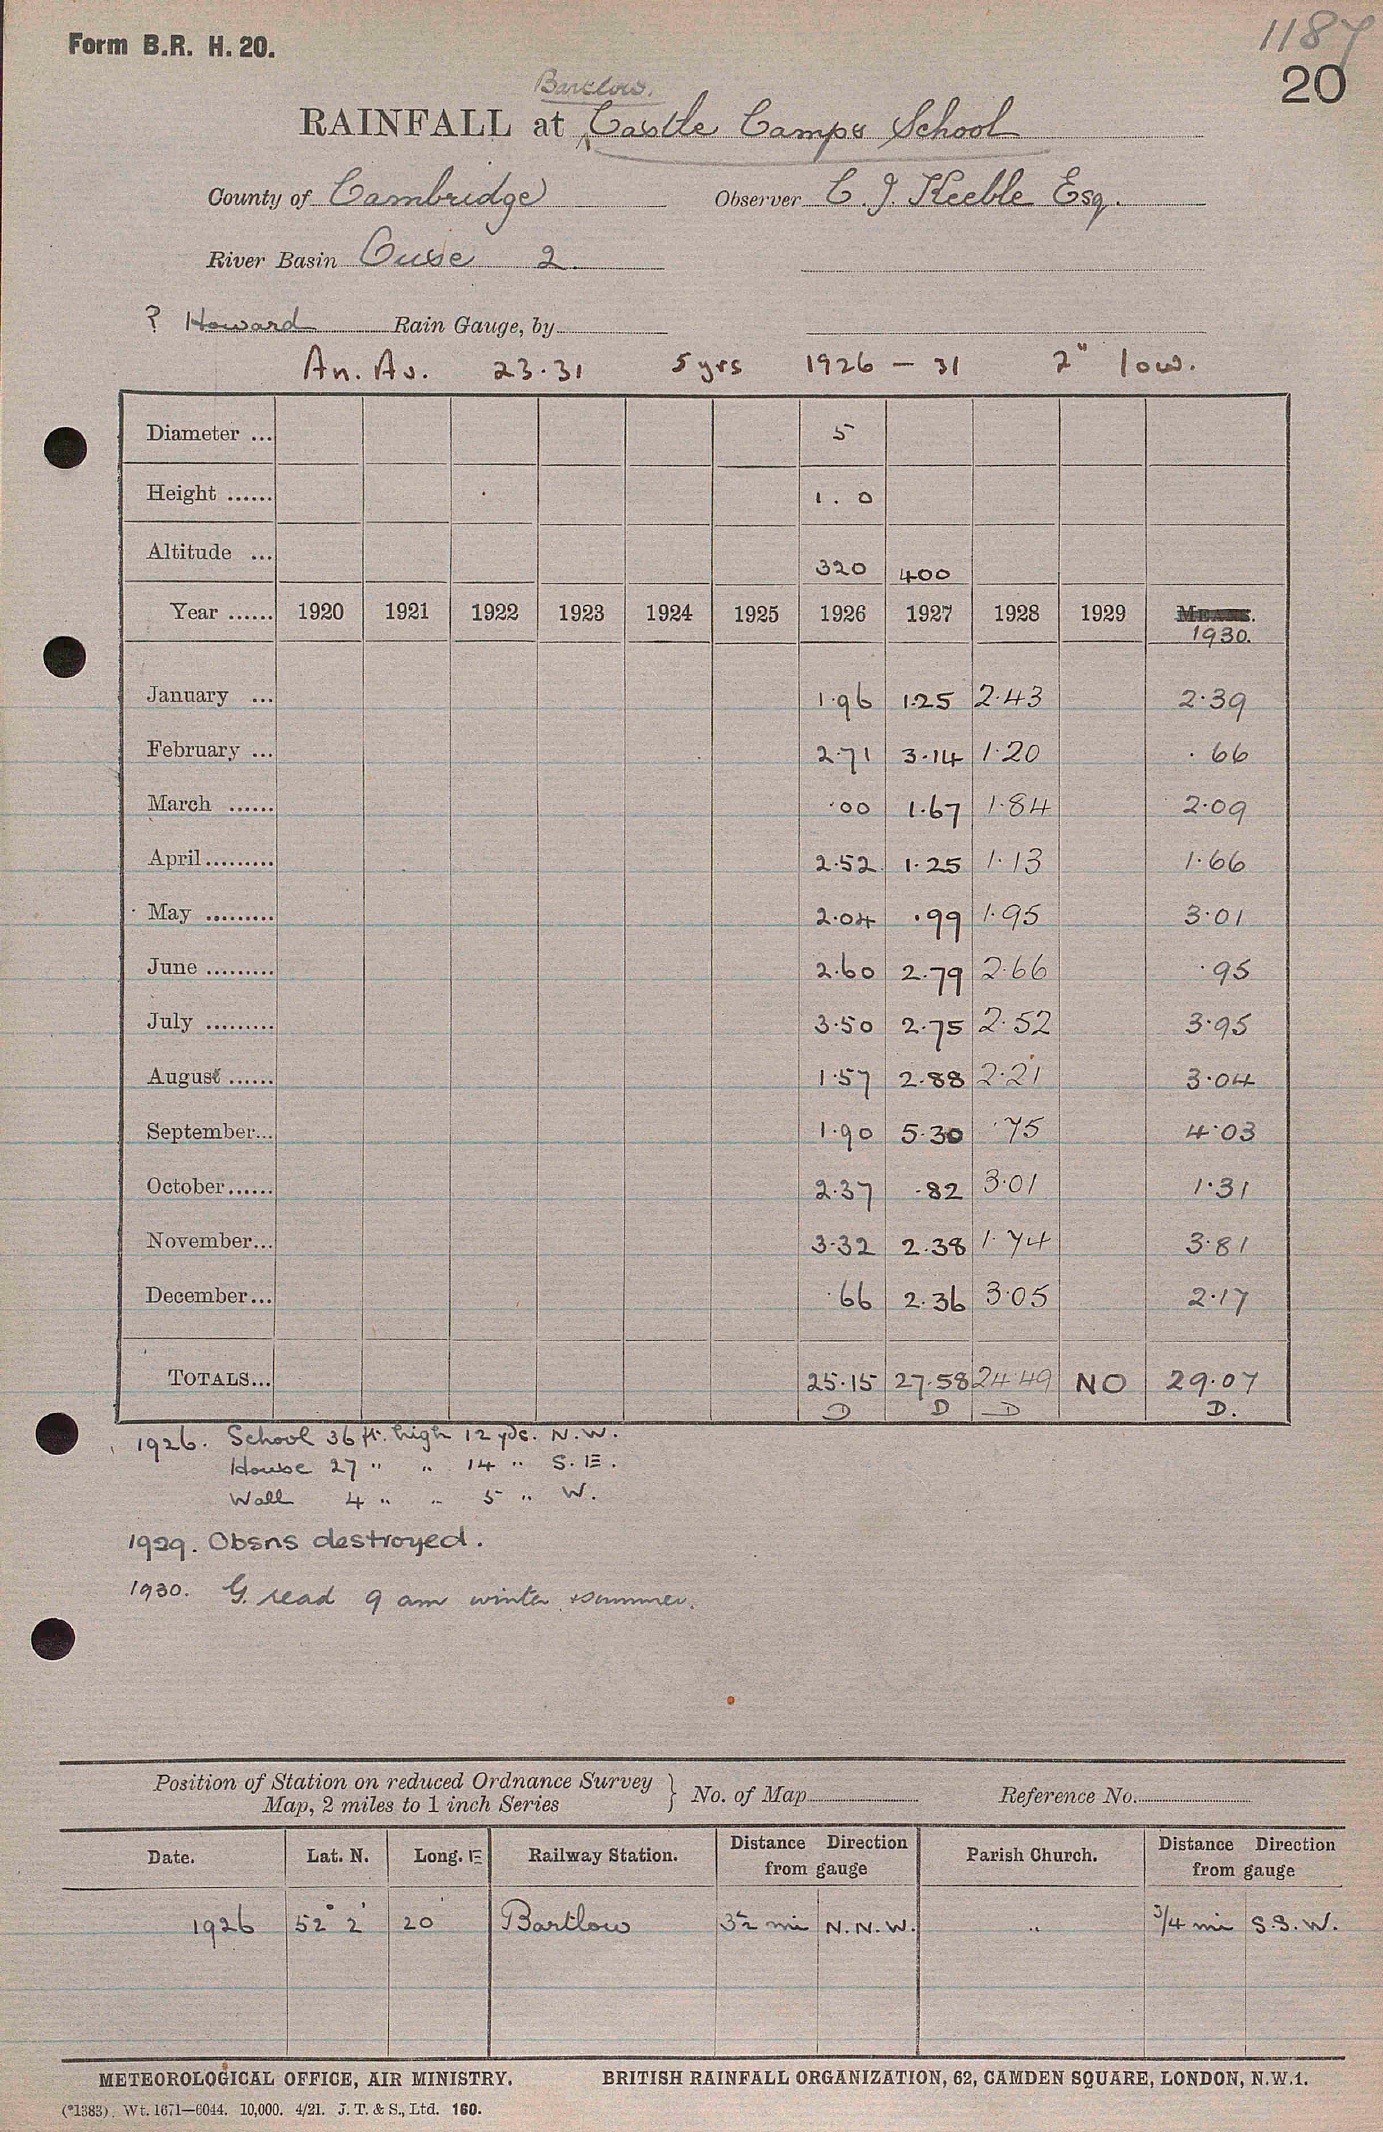 Form B.R. H. 20.
1187
20
Bartlow.
RAINFALL at Castle Camps School
County of Cambridge Observer C. J. Keeble Esq.
River Basin Ouse 2.
? Howard Rain Gauge, by
An. Av. 23.31 5 yrs 1926 - 31 2" low.
Diameter ... 5
Height ...... 1.0
Altitude ... 320 400
Year ...... 1920 1921 1922 1923 1924 1925 1926 1927 1928 1929 MEANS.
1930.
January ... 1.96 1.25 2.43 2.39
February ... 2.71 3.14 1.20 .66
March ...... .00 1.67 1.84 2.09
April ......... 2.52 1.25 1.13 1.66
May ......... 2.04 .99 1.95 3.01
June ......... 2.60 2.79 2.66 .95
July ......... 3.50 2.75 2.52 3.95
August ...... 1.57 2.88 2.21 3.04
September... 1.90 5.30 .75 4.03
October...... 2.37 .82 3.01 1.31
November... 3.32 2.38 1.74 3.81
December... .66 2.36 3.05 2.17
TOTALS... 25.15 27.58 24.49 NO 29.07
D D D D.
1926. School 36 ft. high 12 yds. N.W.
House 27 " " 14 " S.E.
Wall 4 " " 5 " W.
1929. Obsns destroyed.
1930. G. read 9 am winter & summer.
Position of Station on reduced Ordnance Survey } No. of Map Reference No.
Map, 2 miles to 1 inch Series
Date. Lat. N. Long. E Railway Station. Distance Direction from gauge Parish Church. Distance Direction from gauge
1926 52° 2' 20' Bartlow 3½ mi N.N.W. " 3/4 mi S.S.W.
METEOROLOGICAL OFFICE, AIR MINISTRY. BRITISH RAINFALL ORGANIZATION, 62, CAMDEN SQUARE, LONDON, N.W.1.
(*1383). Wt. 1671—6044. 10,000. 4/21. J. T. & S., Ltd. 160.